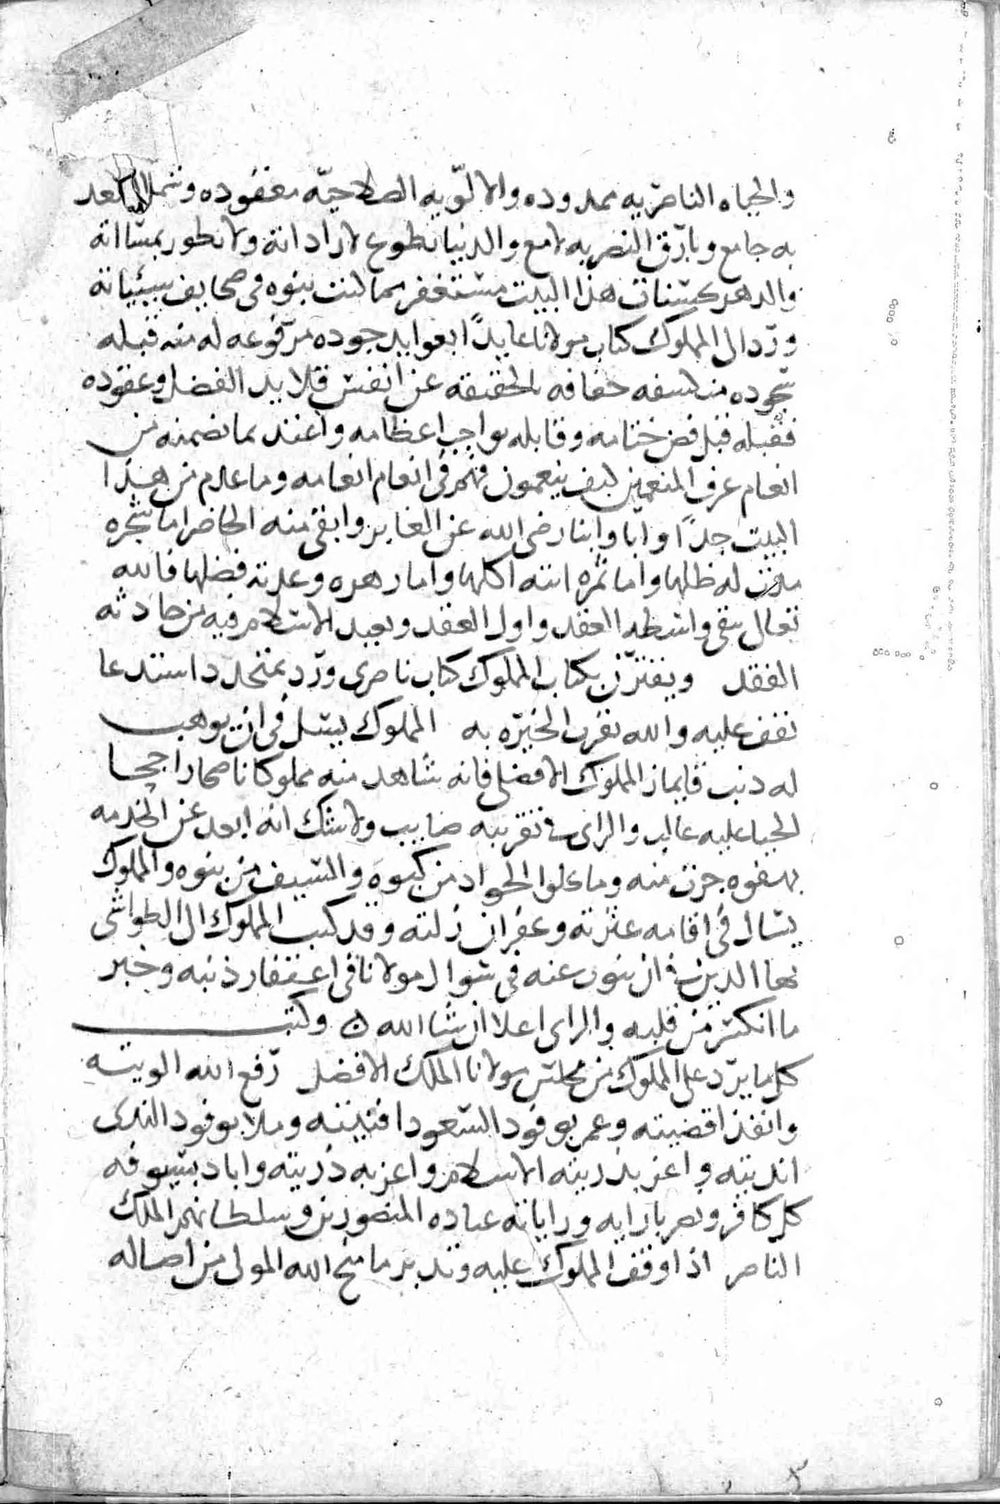 والحياه الناصريه ممدوده والالويه الصلاحيه معقوده وشمل السعد
به جامع وبارق النصر به لامع والدنيا بطوع لاراداته ولا تطور بمساآته
والدهر كحسنات هذا البيت مستغفر مما كتبت بنوه في صحايف سيئياته
ورد الى المملوك كتاب مولانا عايدا بعوايد جوده مرفوعه له منه قبله
سجوده منكشفه حقا فه الحقيقه عن انفس قلايد الفضل وعقوده
فقبله قبل فض ختامه وقابله بواجب اعظامه واعتد بما تضمنه من
انعام عرف المنعمين كيف ينعمون فهم في انعام انعامه وما عدم من هذا
البيت جدا وابا وابنا رضى الله عن الغابر وابقى منه الحاضر اما شجره
مدت له ظلها واما ثمره اتته اكلها واما زهره وعدته فضلها فالله
تعالى يبقى واسطه العقد واول العقد ويعيد الاسلام فيه من حادثه
الفقد ويقترن بكتاب المملوك كتاب ناصرى ورد بمتجدد استدعا
نقف عليه والله يقرن الخيره به المملوك يسل في ان يوهب
له ذنب قايماز المملوك الافضلى فانه شاهد منه مملوكا ناصحا راجحا
الحيا عليه غالب والراى في تقريبه صايب ولا شك انه ابعد عن الخدمه
بهفوه جرت منه وما تخلوا الجواد من كبوه والسيف من نبوه والمملوك
يسال في اقامه عثرته وغفران زلته وقد كتب المملوك الى الطواشى
بها الدين في ان ينوب عنه في سوال مولانا في اغتفار ذنبه وجبر
ما انكسر من قلبه والراى اعلا ان شا الله وكتب
كل ما يرد على المملوك من مجلس مولانا الملك الافضل رفع الله الويته
وانفذ اقضيته وعمر بوفود السعود افنيته وملا بوفود الندى
انديته واعز بذريته الاسلام واعز به ذريته واباد بسيوفه
كل كافر ونصر بارايه وراياته عباده المنصورين وسلطانهم الملك
الناصر اذا وقف المملوك عليه وتدبر ما منح الله المولى من اصاله